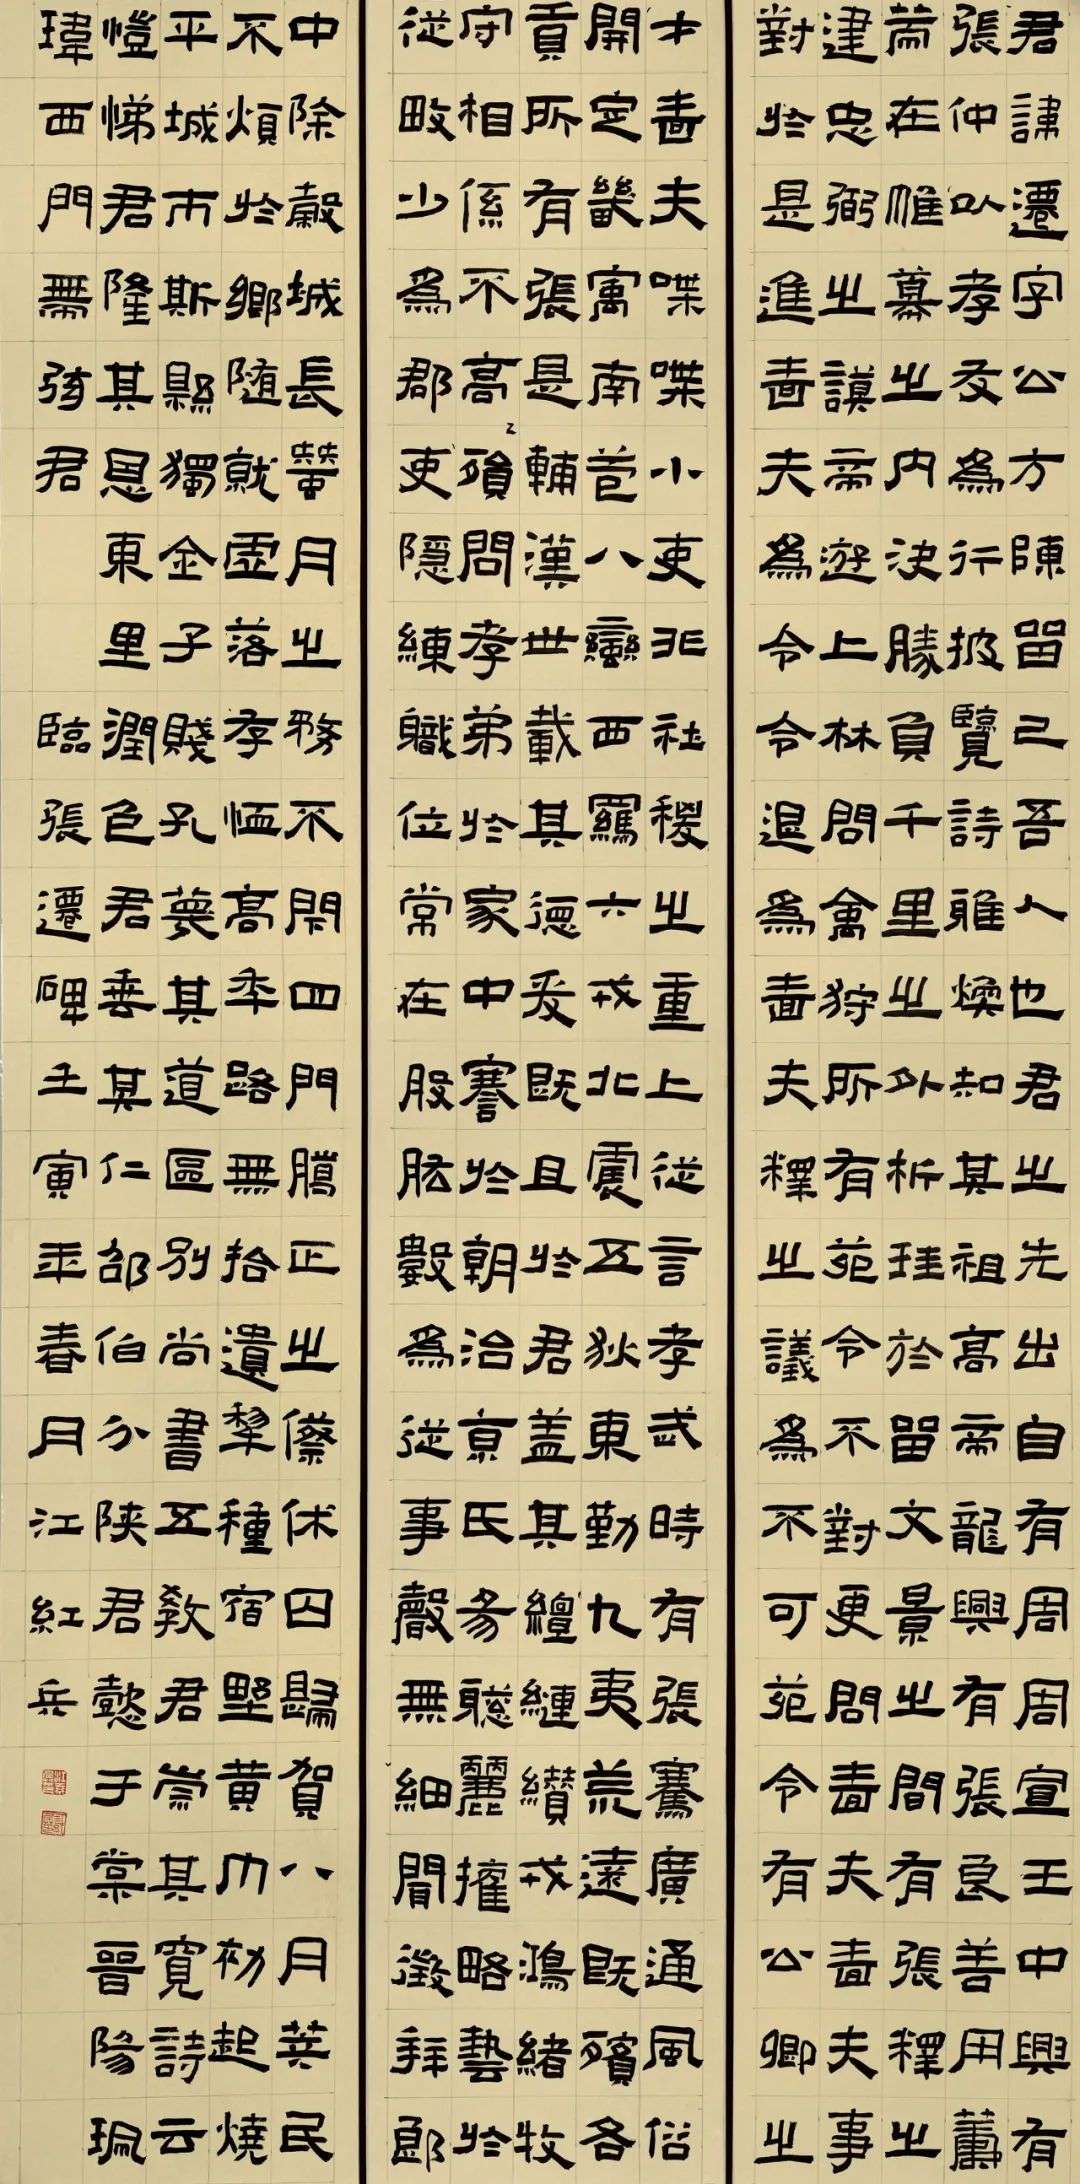 君諱遷字公方陳留己吾人也君之先出自有周周宣王中興有
張仲以孝友為行披覽詩雅煥知其祖高帝龍興有張良善用籌
策在帷幕之內決勝負千里之外析珪於留文景之間有張釋之
建忠弼之謨帝遊上林問禽狩所有苑令不對更問嗇夫嗇夫事
對於是進嗇夫為令令退為嗇夫釋之議為不可苑令有公卿之
才嗇夫喋喋小吏非社稷之重上從言孝武時有張騫廣通風俗
開定畿寓南苞八蠻西羈六戎北震五狄東勤九夷荒遠既殯各
貢所有張是輔漢世載其德爰既且於君蓋其繵縺纘戎鴻緒牧
守相係不高殞問孝弟於家中謇於朝治京氏易聰麗權略藝於
從畋少為郡吏隱練職位常在股肱數為從事聲無細聞徵拜郎
中除穀城長蠶月之務不閑四門臘正之僚休囚歸賀八月筭民
不煩於鄉隨就虛落存恤高年路無拾遺犁種宿野黃巾初起燒
平城市斯縣獨全子賤孔蔑其道區別尚書五教君崇其寬詩云
愷悌君隆其恩東里潤色君垂其仁邵伯分陝君懿于棠晉陽珮
瑋西門帶弦君 臨張遷碑壬寅年春月江紅兵